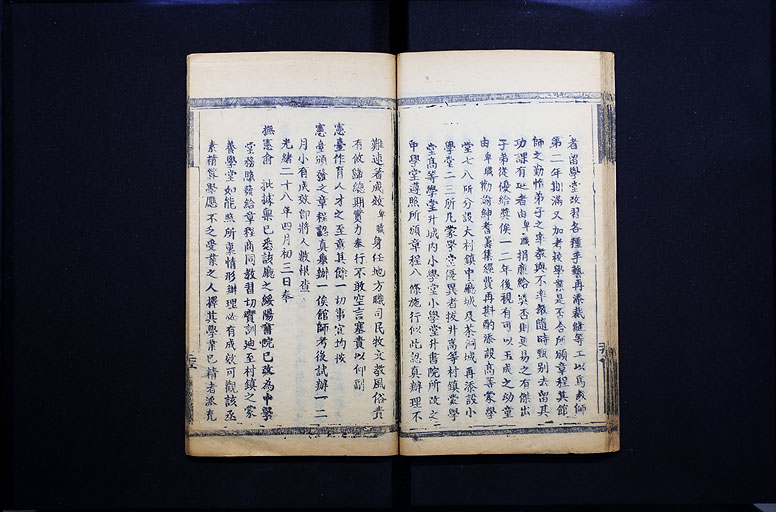 者留學堂改習各種手藝再添裁縫等工以爲教師
第二年期滿又加考較學業是否合所頒章程其館
師之勤惰弟子之率教與不率教隨時甄別去留其
功課有進者由卑職捐廉給獎否則更易之有傑出
子弟從優給獎俟一二年後視有可以玉成之幼童
由卑職勸諭紳耆籌集經費再斟酌添設高等蒙學
堂七八所分設大村鎮中廳城及茶洞城再添設小
學堂二三所凡蒙學堂優異者拔升高等村鎮蒙學
堂高等學堂升城內小學堂小學堂升書院所改之
中學堂遵照所頒章程八條施行似此認真辦理不
難速著成效卑職身任地方職司民牧文教風俗責
有攸歸總期實力奉行不敢空言塞責以仰副
憲臺作育人才之至意其餘一切事宜均按
憲臺頒發之章程認真舉辦一俟館師考後試辦一二
月小有成效即將人數根查
光緒二十八年四月初三日奉
撫憲俞 批據稟已悉該廳之綏陽書院已改為中學
堂務照發給章程商同教習切實訓迪至村鎮之蒙
養學堂如能照所稟情形辦理必有成效可觀該丞
素精算學應不乏受業之人擇其學業已精者派充